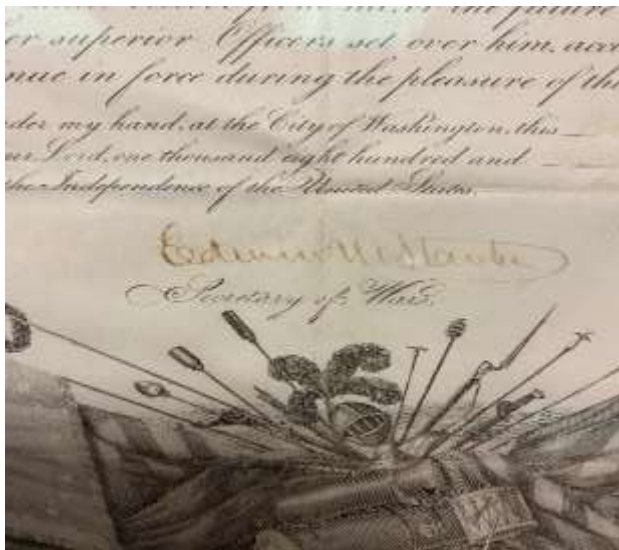 in the future
or superior Officers set over him, acco
nue in force during the pleasure of the
der my hand, at the City of Washington, this
ur Lord, one thousand eight hundred and
the Independence of the United States.
Edwin M Stanton
Secretary of War.